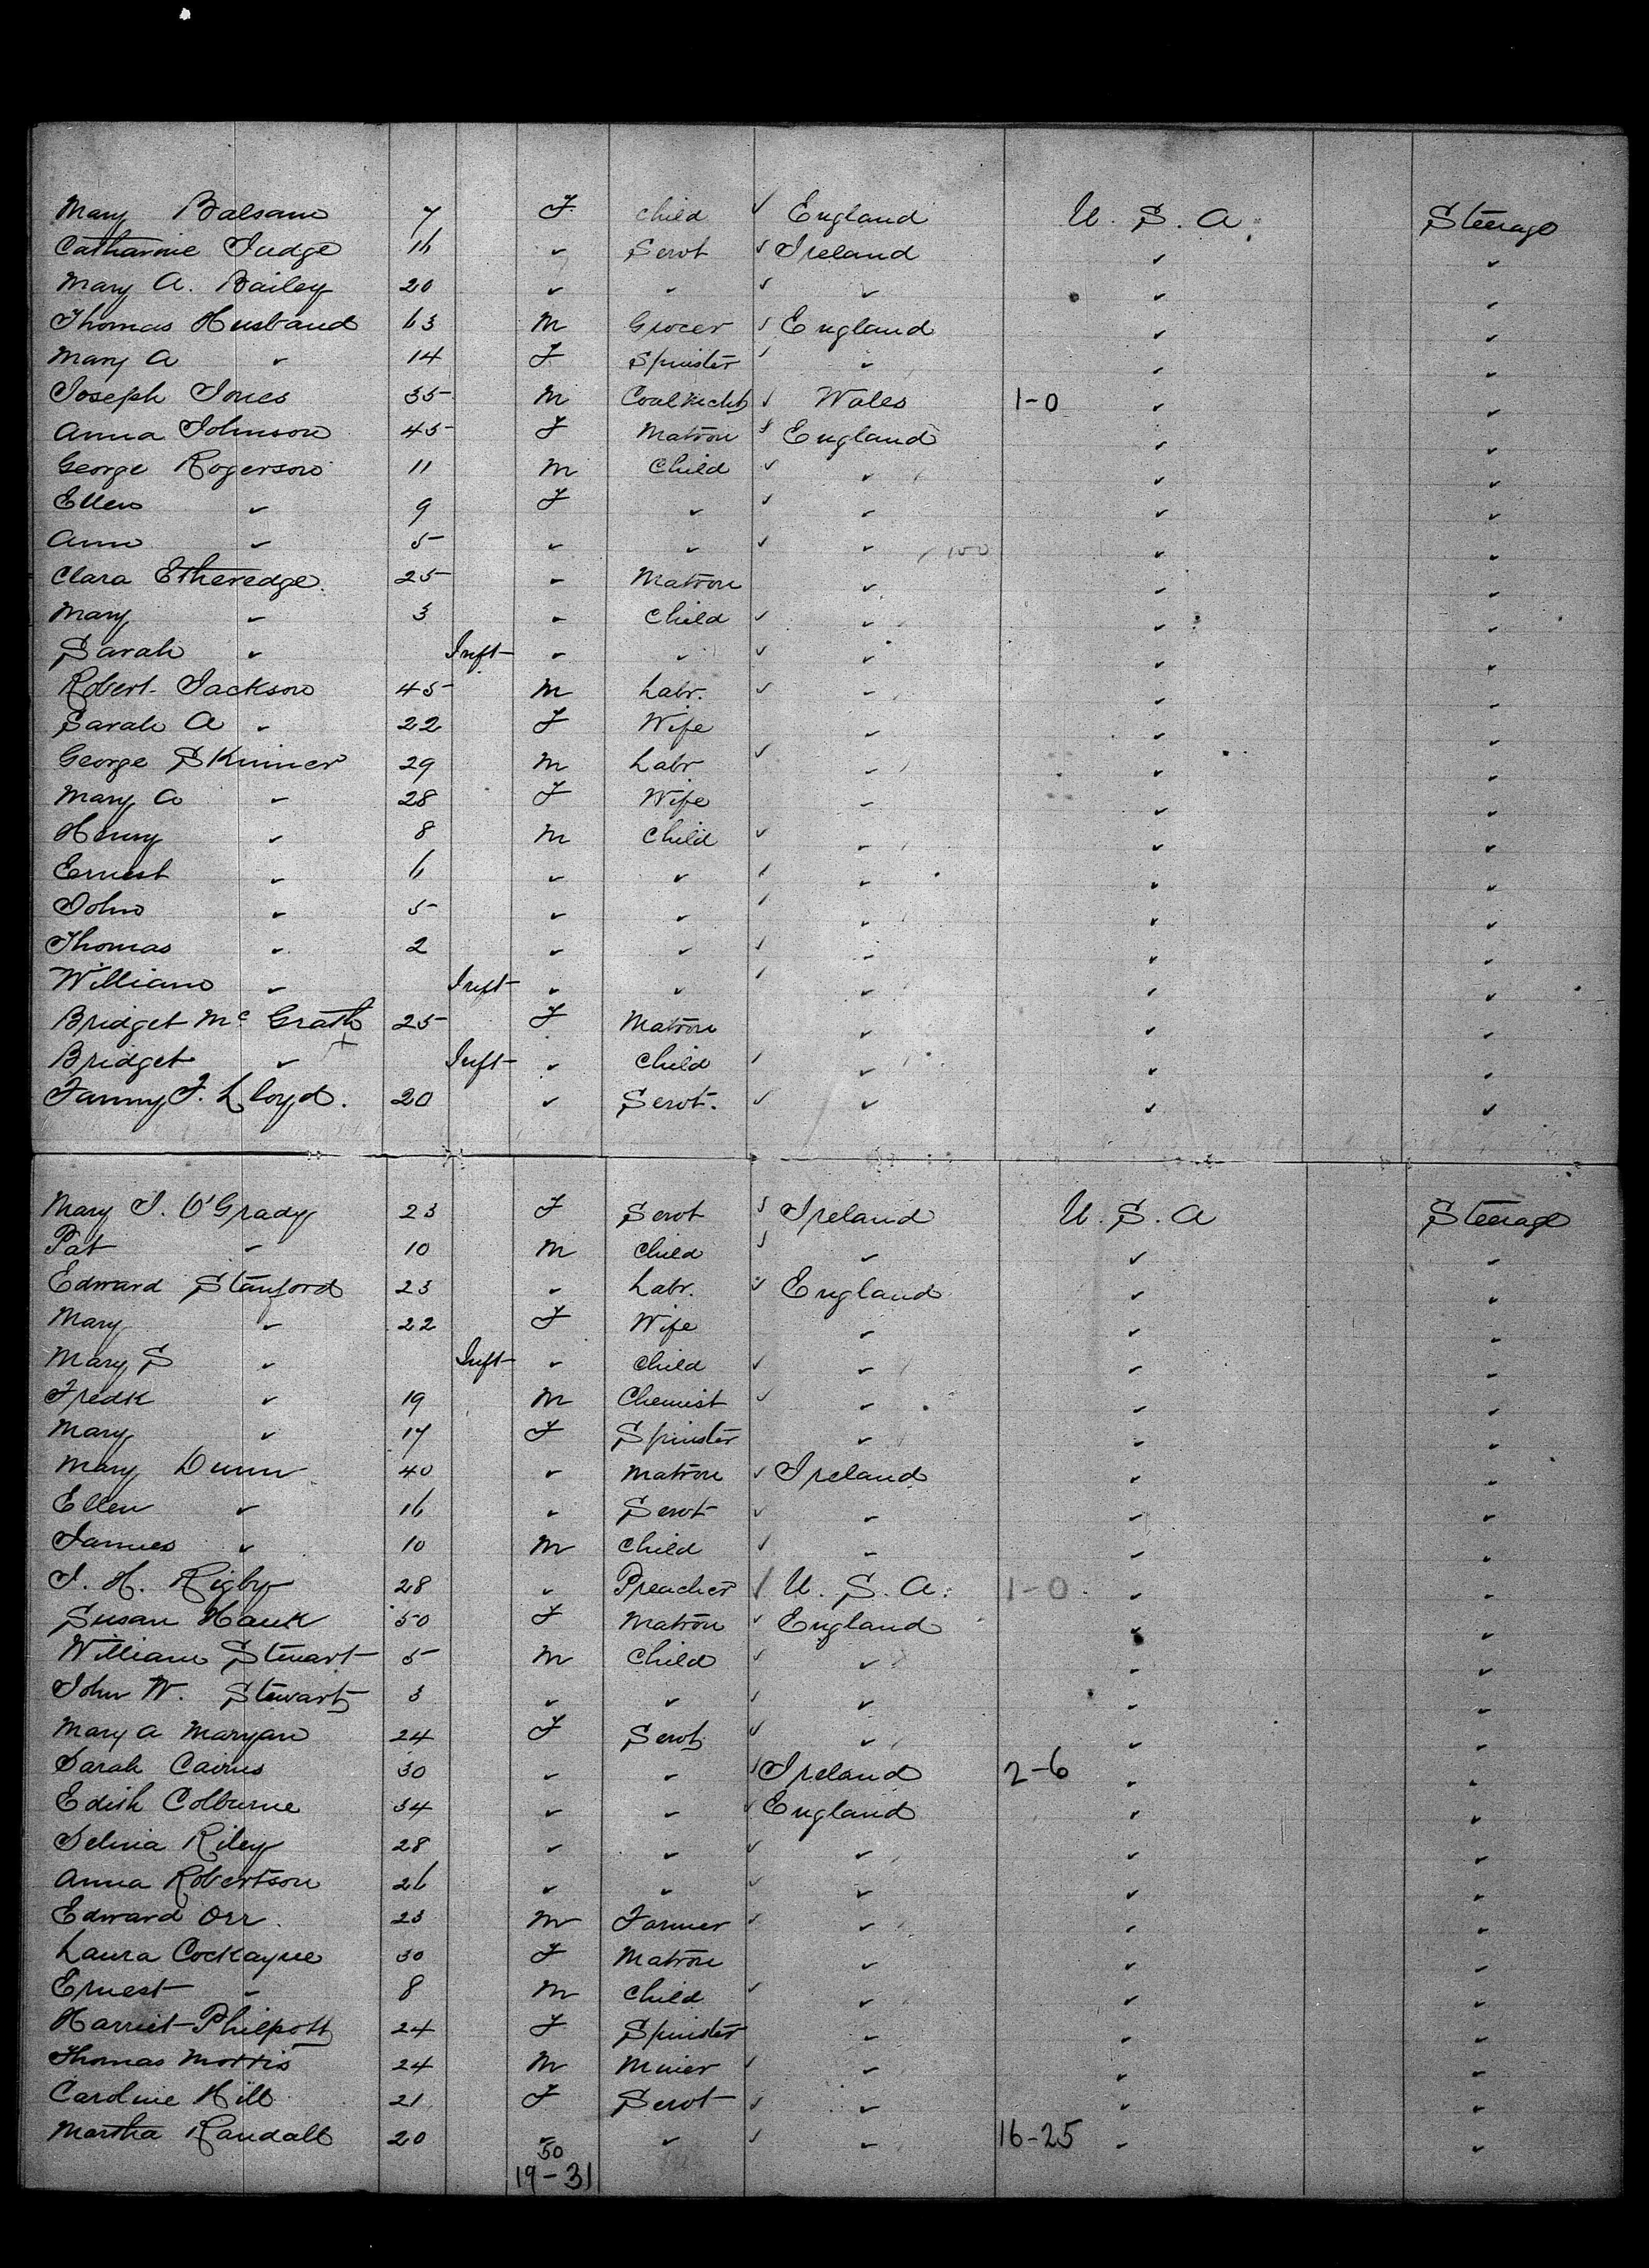 Mary Balsam 7 F. Child ✓ England U. S. A. Steerage
Catharine Judge 16 ✓ Servt ✓ Ireland ✓ ✓
Mary A. Bailey 20 ✓ ✓ ✓ ✓ ✓ ✓
Thomas Husband 63 M Grocer ✓ England ✓ ✓
Mary A ✓ 14 F Spinster ✓ ✓ ✓ ✓
Joseph Jones 35 M ✓ Wales 1-0 ✓ ✓
Anna Johnson 45 F Matron ✓ England ✓ ✓
George Rogerson 11 M Child ✓ ✓ ✓ ✓
Ellen ✓ 9 F ✓ ✓ ✓ ✓ ✓
Ann ✓ 5 ✓ ✓ ✓ ✓ 100 ✓ ✓
Clara Etheredge. 25 ✓ Matron ✓ ✓ ✓
Mary ✓ 3 ✓ Child ✓ ✓ ✓ ✓
Sarah ✓ Inft ✓ ✓ ✓ ✓ ✓ ✓
Robert Jackson 45 M Labr. ✓ ✓ ✓ ✓
Sarah A ✓ 22 F Wife ✓ ✓ ✓
George Skinner 29 M Labr ✓ ✓ ✓ ✓
Mary A ✓ 28 F Wife ✓ ✓ ✓
Henry ✓ 8 M Child ✓ ✓ ✓ ✓
Ernest ✓ 6 ✓ ✓ ✓ ✓ ✓ ✓
John ✓ 5 ✓ ✓ ✓ ✓ ✓ ✓
Thomas ✓ 2 ✓ ✓ ✓ ✓ ✓ ✓
William ✓ Inft ✓ ✓ ✓ ✓ ✓ ✓
Bridget Mc Grath 25 F Matron ✓ ✓ ✓
Bridget ✓ x Inft ✓ Child ✓ ✓ ✓ ✓
Fanny F. Lloyd. 20 ✓ Servt. ✓ ✓ ✓ ✓
Mary J. O'Grady 23 F Servt ✓ Ireland U. S. A Steerage
Pat ✓ 10 M Child ✓ ✓ ✓ ✓
Edward Stanford 23 ✓ Labr. ✓ England ✓ ✓
Mary ✓ 22 F Wife ✓ ✓ ✓
Mary S ✓ Inft ✓ Child ✓ ✓ ✓ ✓
Fredk ✓ 19 M Chemist ✓ ✓ ✓ ✓
Mary ✓ 17 F Spinster ✓ ✓ ✓
Mary Dunn 40 ✓ Matron ✓ Ireland ✓ ✓
Ellen ✓ 16 ✓ Servt ✓ ✓ ✓ ✓
James ✓ 10 M Child ✓ ✓ ✓ ✓
J. H. Rigby 28 ✓ Preacher ✓ U. S. A. 1-0 ✓ ✓
Susan Hauk 50 F Matron ✓ England ✓ ✓
William Stewart 5 M Child ✓ ✓ ✓ ✓
John W. Stewart 3 ✓ ✓ ✓ ✓ ✓ ✓
Mary A Maryan 24 F Servt ✓ ✓ ✓ ✓
Sarah Cairns 30 ✓ ✓ ✓ Ireland 2-6 ✓ ✓
Edith Colburne 34 ✓ ✓ ✓ England ✓ ✓
Selina Riley 28 ✓ ✓ ✓ ✓ ✓ ✓
Anna Robertson 26 ✓ ✓ ✓ ✓ ✓ ✓
Edward Orr 23 M Farmer ✓ ✓ ✓ ✓
Laura Cockayne 30 F Matron ✓ ✓ ✓
Ernest ✓ 8 M Child ✓ ✓ ✓ ✓
Harriet Philpott 24 F Spinster ✓ ✓ ✓
Thomas Morris 24 M Miner ✓ ✓ ✓ ✓
Caroline Hill 21 F Servt ✓ ✓ ✓ ✓
Martha Randall 20 ✓ ✓ ✓ ✓ 16-25 ✓ ✓
50
19-31